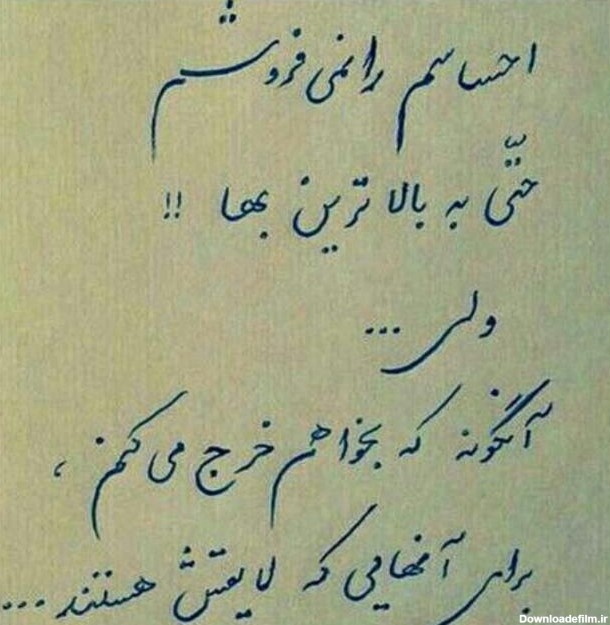 احساسم را نمی فروشم
حتّی به بالاترین بها !!
ولی ...
آنگونه که بخواهم خرج می کنم ،
برای آنهایی که لایقش هستند ...
Downloadefilm.ir